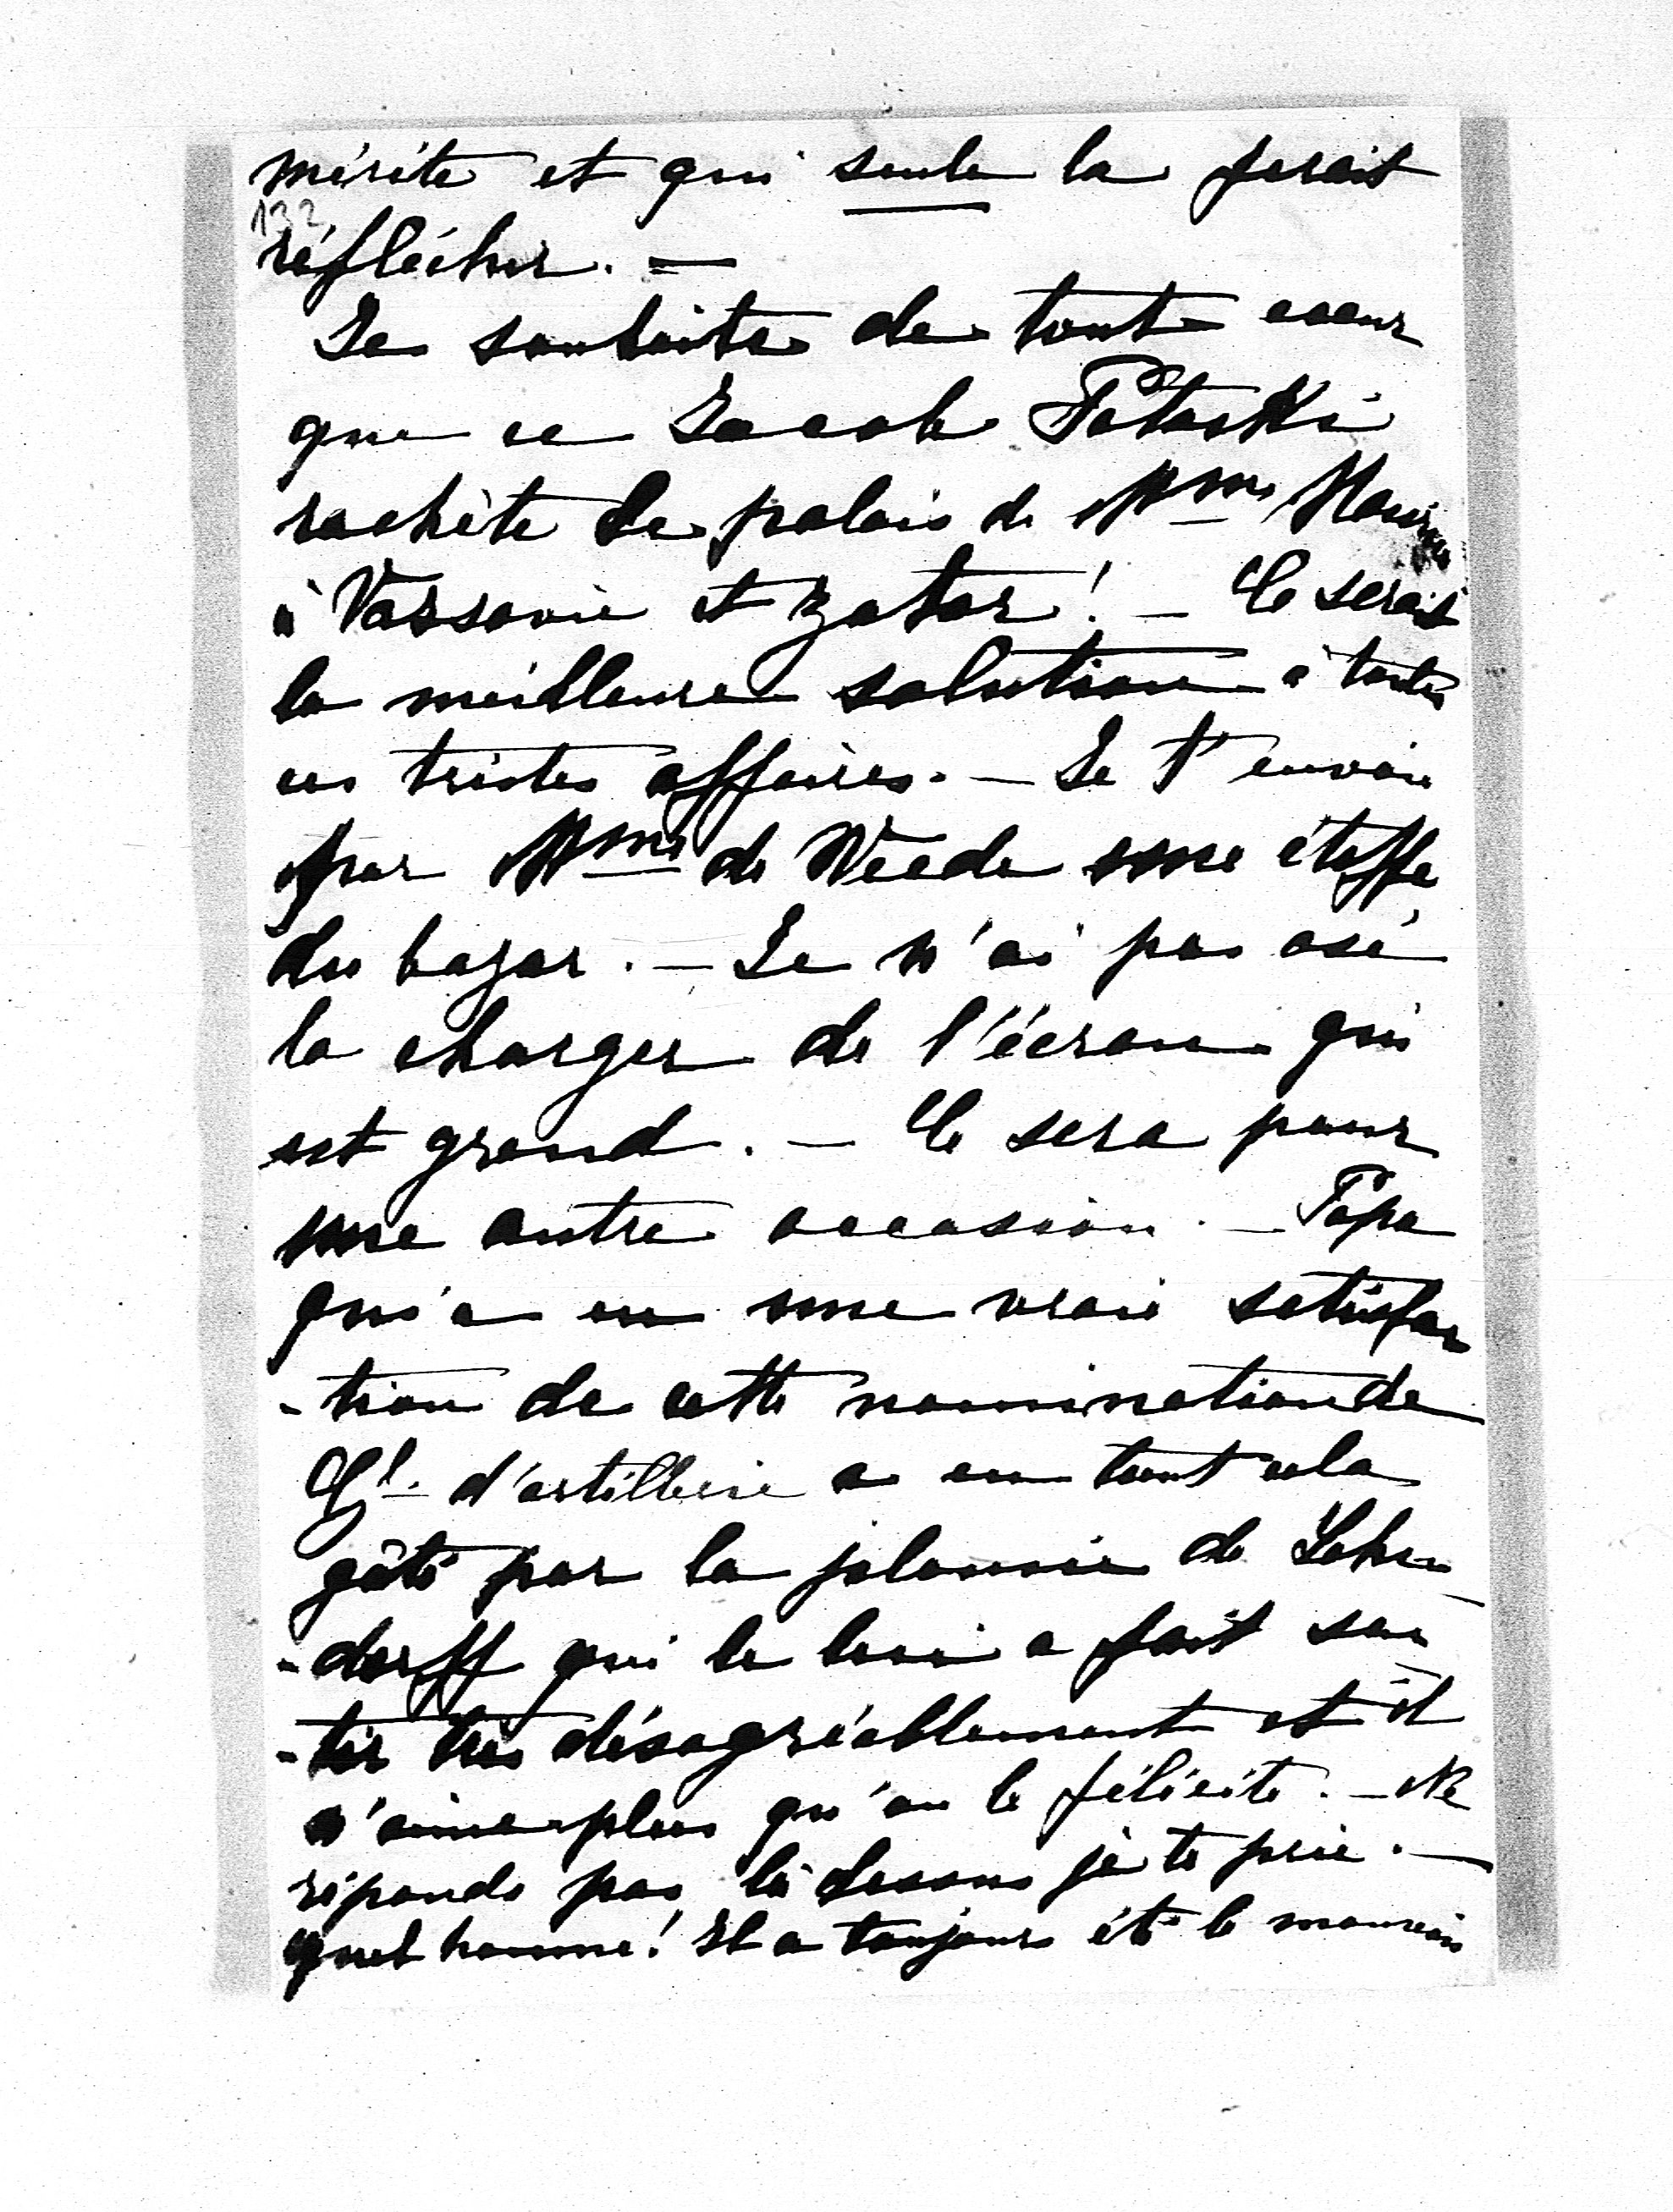 mérite et qui seule la ferait
132
réfléchir. —
Je souhaite de tout coeur
que ce Jacob Potocki
rachète le palais de Mme
à Varsovie et Zator! — Ce serait
la meilleure solution à toutes
ces tristes affaires. — Je t'envoie
par Mme de Weede une étoffe
du bazar. — Je n'ai pas osé
la charger de l'écran qui
est grand. — Ce sera pour
une autre occasion. — Papa
qui a eu une vraie satisfac
-tion de cette nomination de
Gl. d'artillerie a eu tout cela
gâté par la jalousie de Lehn
-dorff qui le lui a fait sen
-tir très désagréablement et il
n'aime plus qu'on le félicite. — Ne
réponds pas là dessus je te prie. —
quel homme! Il a toujours été le mauvais